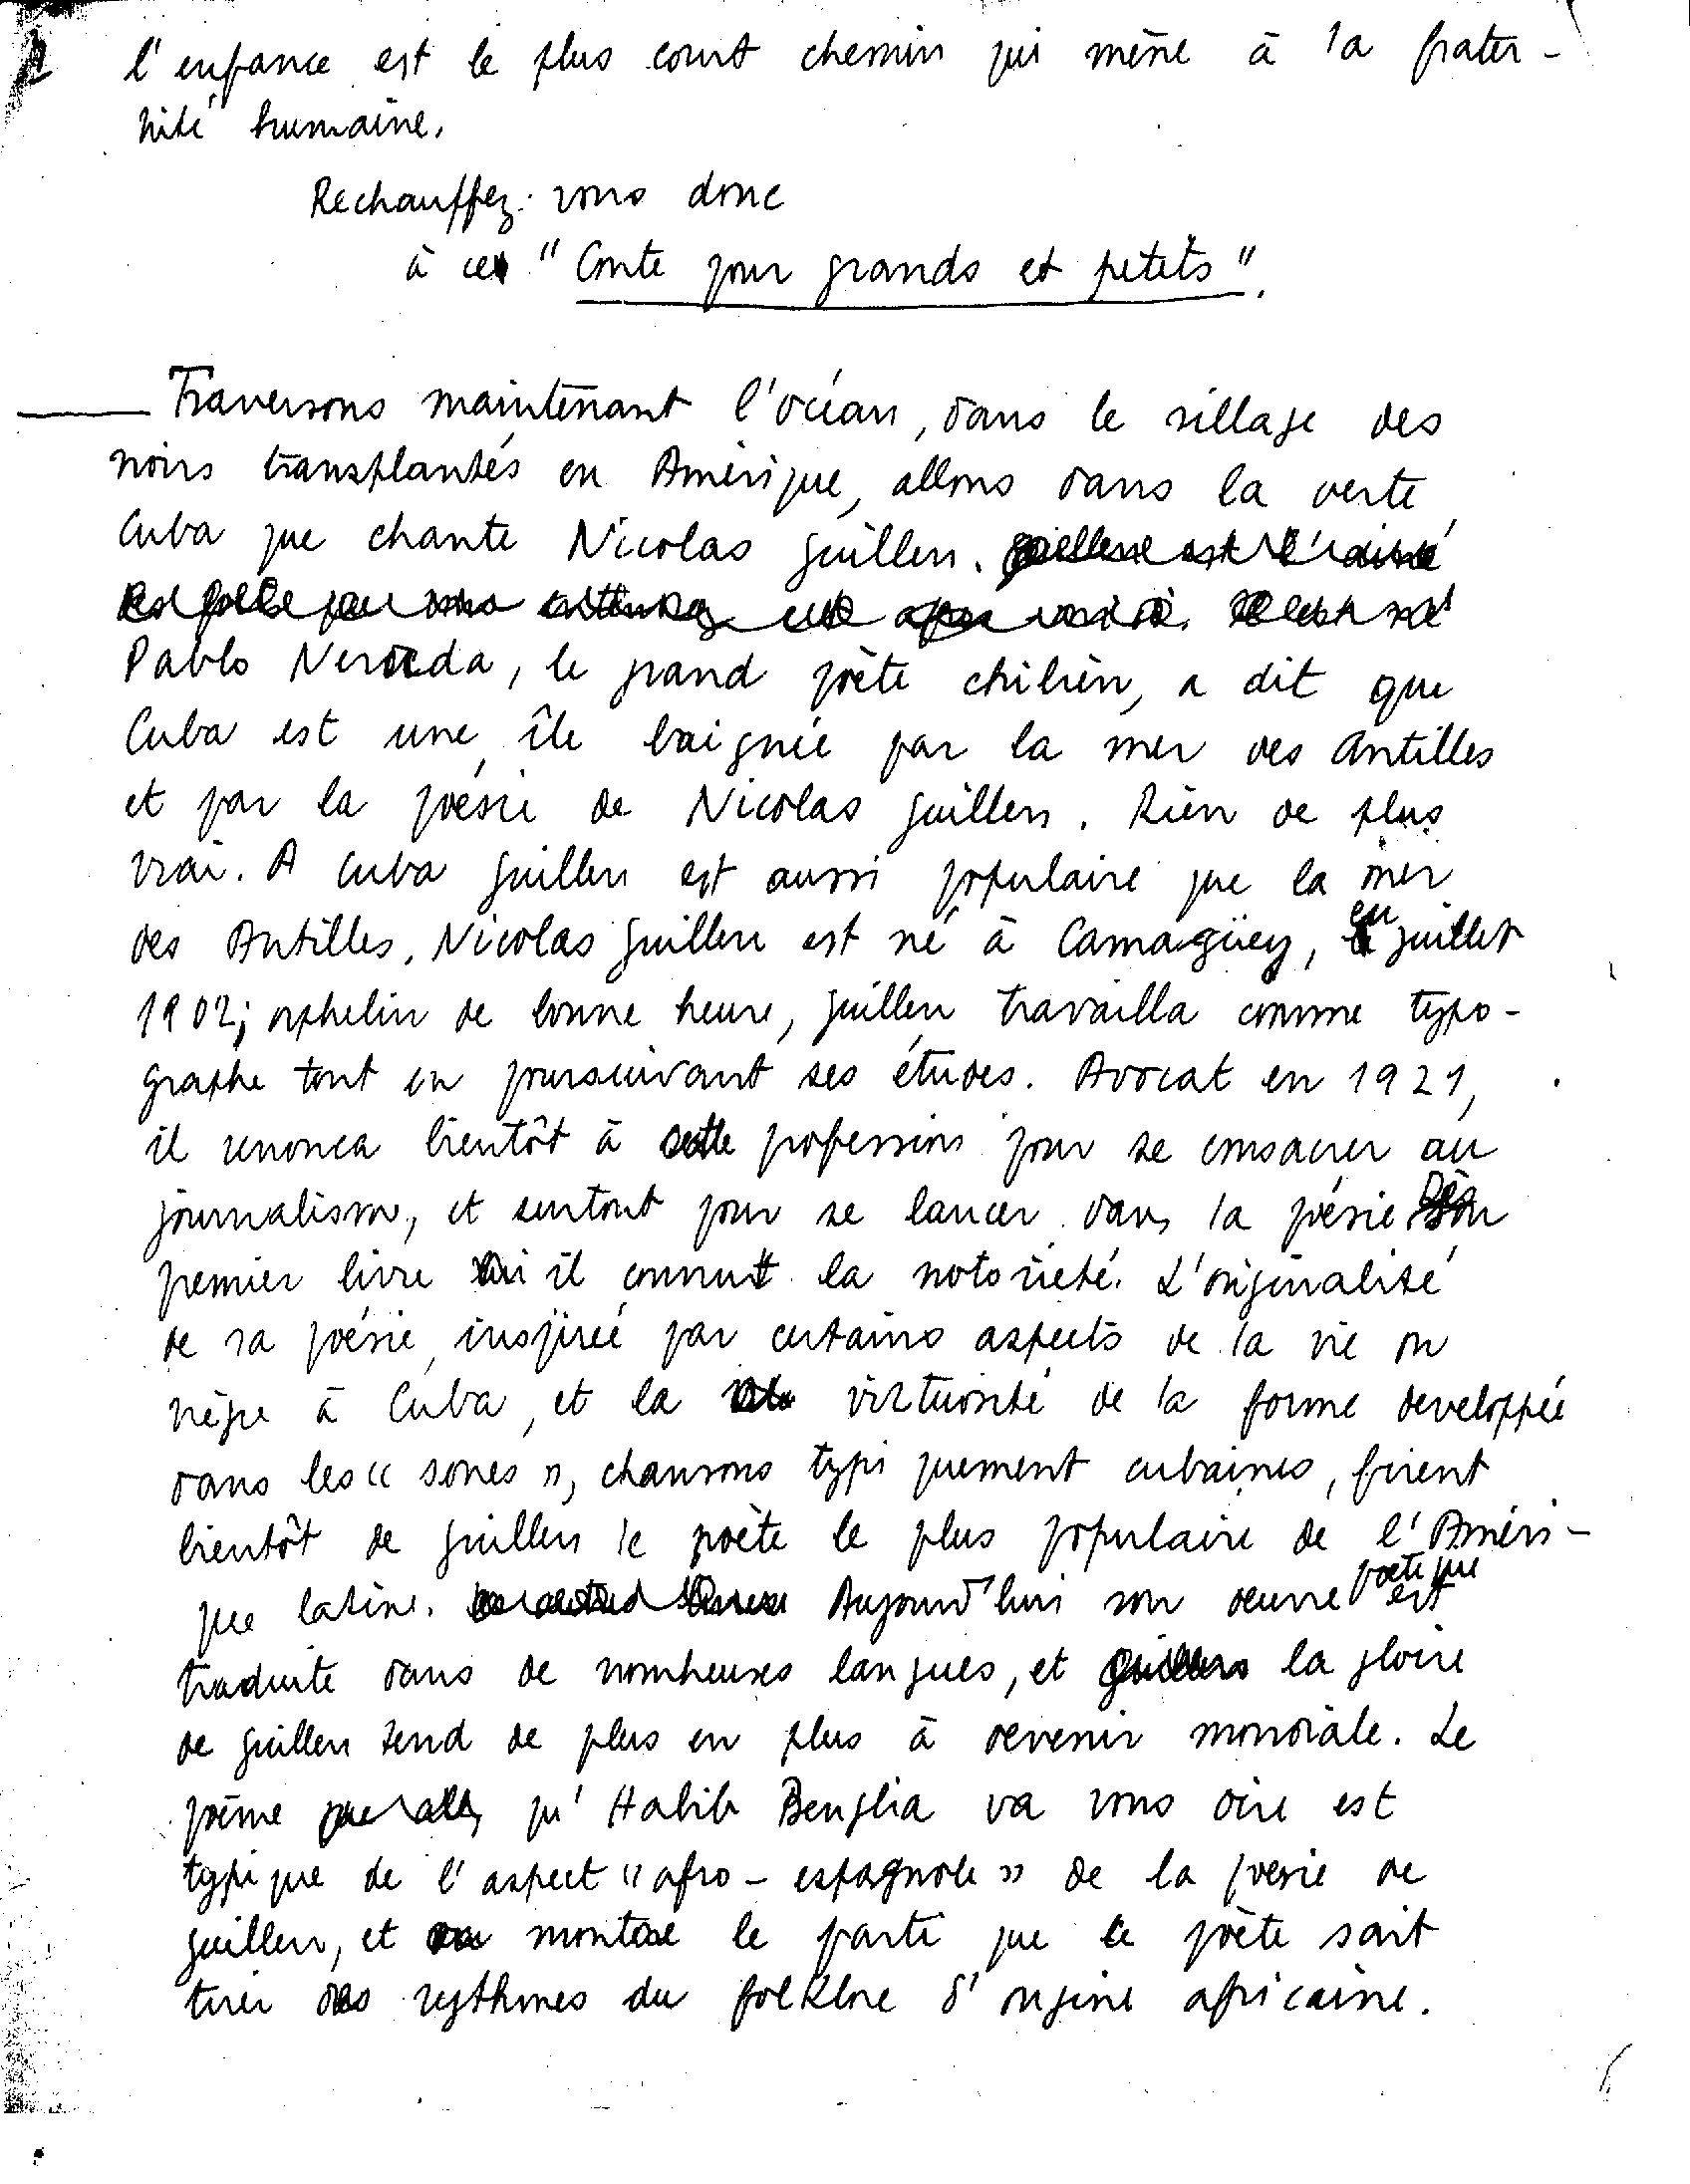 l'enfance est le plus court chemin qui mène à la frater-
nité humaine.
Rechauffez-vous donc
à ce "Conte pour grands et petits".
Traversons maintenant l'océan, dans le sillage des
noirs transplantés en Amérique, allons dans la verte
Cuba que chante Nicolas Guillen.
Pablo Neruda, le grand poète chilien, a dit que
Cuba est une île baignée par la mer des Antilles
et par la poésie de Nicolas Guillen. Rien de plus
vrai. A Cuba Guillen est aussi populaire que la mer
des Antilles. Nicolas Guillen est né à Camagüey, en juillet
1902; orphelin de bonne heure, Guillen travailla comme typo-
graphe tout en poursuivant ses études. Avocat en 1921,
il renonca bientôt à cette profession pour se consacrer au
journalisme, et surtout pour se lancer dans la poésie. Dès son
premier livre il connut la notorieté. L'originalité
de sa poésie, inspirée par certains aspects de la vie on
nègre à Cuba, et la virtuosité de la forme developpée
dans les « sones », chansons typiquement cubaines, firent
bientôt de Guillen le poète le plus populaire de l'Améri-
que latine. Aujourd'hui son oeuvre poetique est
traduite dans de nombeuses langues, et la gloire
de Guillen tend de plus en plus à devenir mondiale. Le
poème qu'Habib Benglia va vous dire est
typique de l'aspect « afro-espagnole » de la poesie de
Guillen, et montre le parti que le poète sait
tirer des rythmes du folklore d'origine africaine.